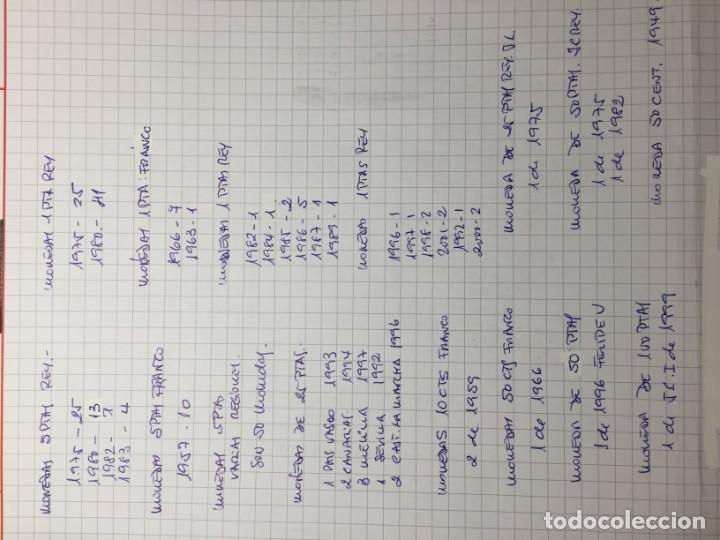 MONEDAS 5 PTAS REY.-
1975 - 25
1980 - 13
1982 - 7
1983 - 4
MONEDAS 5 PTAS FRANCO
1957 - 10
MONEDAS 5 PTAS
VARIAS REGIONES.
SON 50 monedas.
MONEDAS DE 25 PTAS.
1 PAIS VASCO 1993
2 CANARIAS. 1994
3 MELILLA 1997
1 SEVILLA 1992
2 CAST. LA MANCHA 1996
MONEDAS 10 CTS FRANCO
2 de 1959
MONEDAS 50 CTS FRANCO
1 de 1966.
MONEDA DE 50. PTAS
1 de 1996 FELIPE V
MONEDA DE 100 PTAS
1 de J.C.I de 1999
MONEDAS 1 PTA REY
1975 - 25
1980. - 41
MONEDAS 1 PTA: FRANCO
1966 - 7
1963 - 1
MONEDAS 1 PTAS REY
1982 - 1
1984 - 1
1985 - 2
1986 - 5
1987 - 1
1989 - 1
MONEDAS 1 PTAS REY
1996 - 1
1997 - 1
1998 - 2
2001 - 2
1992 - 1
2000 - 2
MONEDA DE 25 PTAS REY.
1 de 1975
MONEDA DE 50 PTAS. JC REY.
1 de 1975
1 de 1982
MONEDA 50 CENT. 1949.
todocoleccion